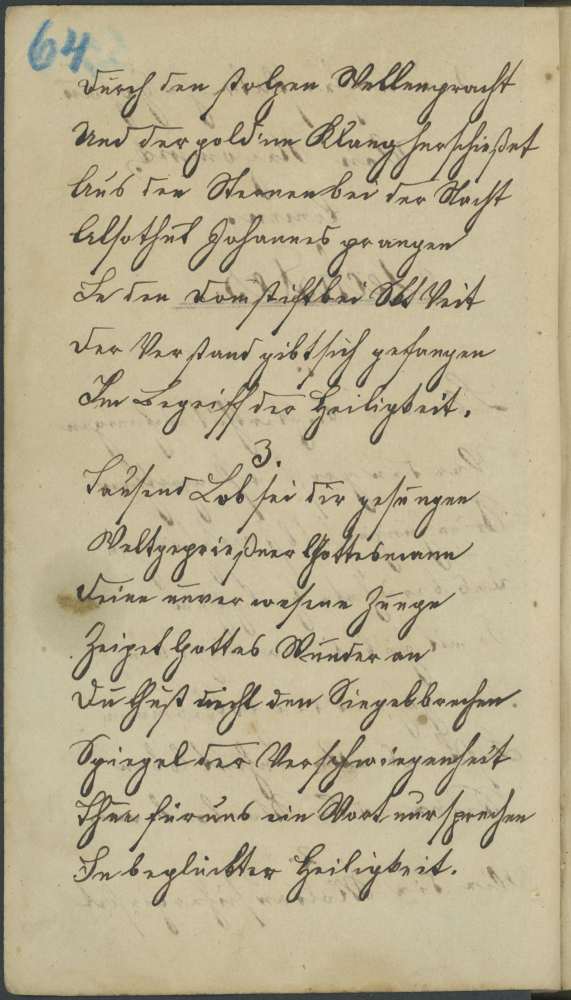 64
Durch den stolzen Wellenpracht
Und der gold'ne Klang herschießet
Aus den Sternen bei der Nacht
Also thut Johannes prangen
In den Domstift bei Skt Veit
Der Verstand gibt sich gefangen
Im Begriff der Heiligkeit.
3.
Tausend Lob sei dir gesungen
Weltgeprießner Gottesmann
Deine unverwesene Zunge
Zeiget Gottes Wunder an
Du thust nicht den Siegel brechen
Spiegel der Verschwiegenheit
Thue für uns ein Wort nur sprechen
In beglückter Heiligkeit.